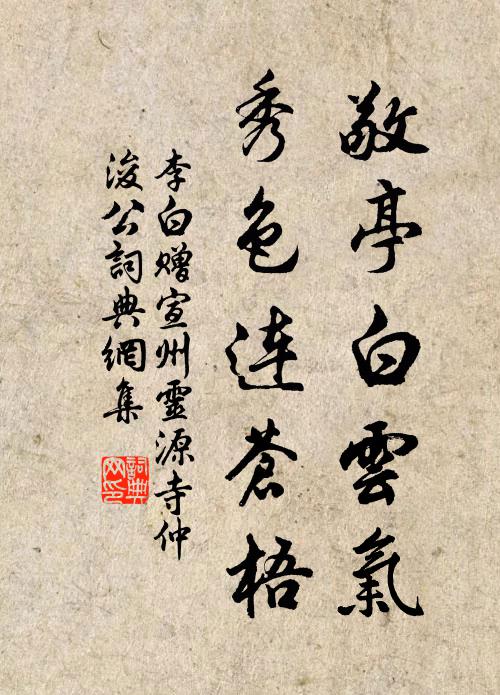 敬亭白雲氣
秀色連蒼梧
李白贈宣州靈源寺仲
浚公詞典網集
詞典網印